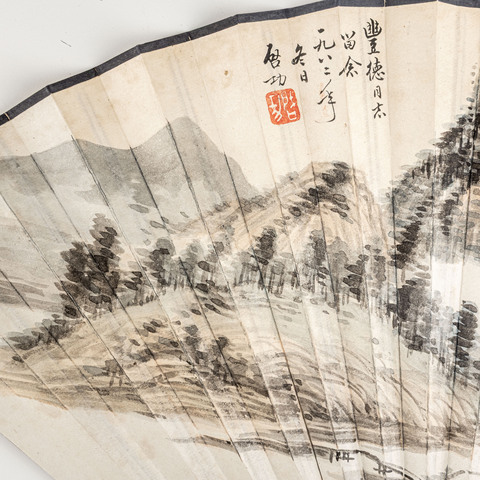 豐德同志
留念
一九八二年
冬日
启功